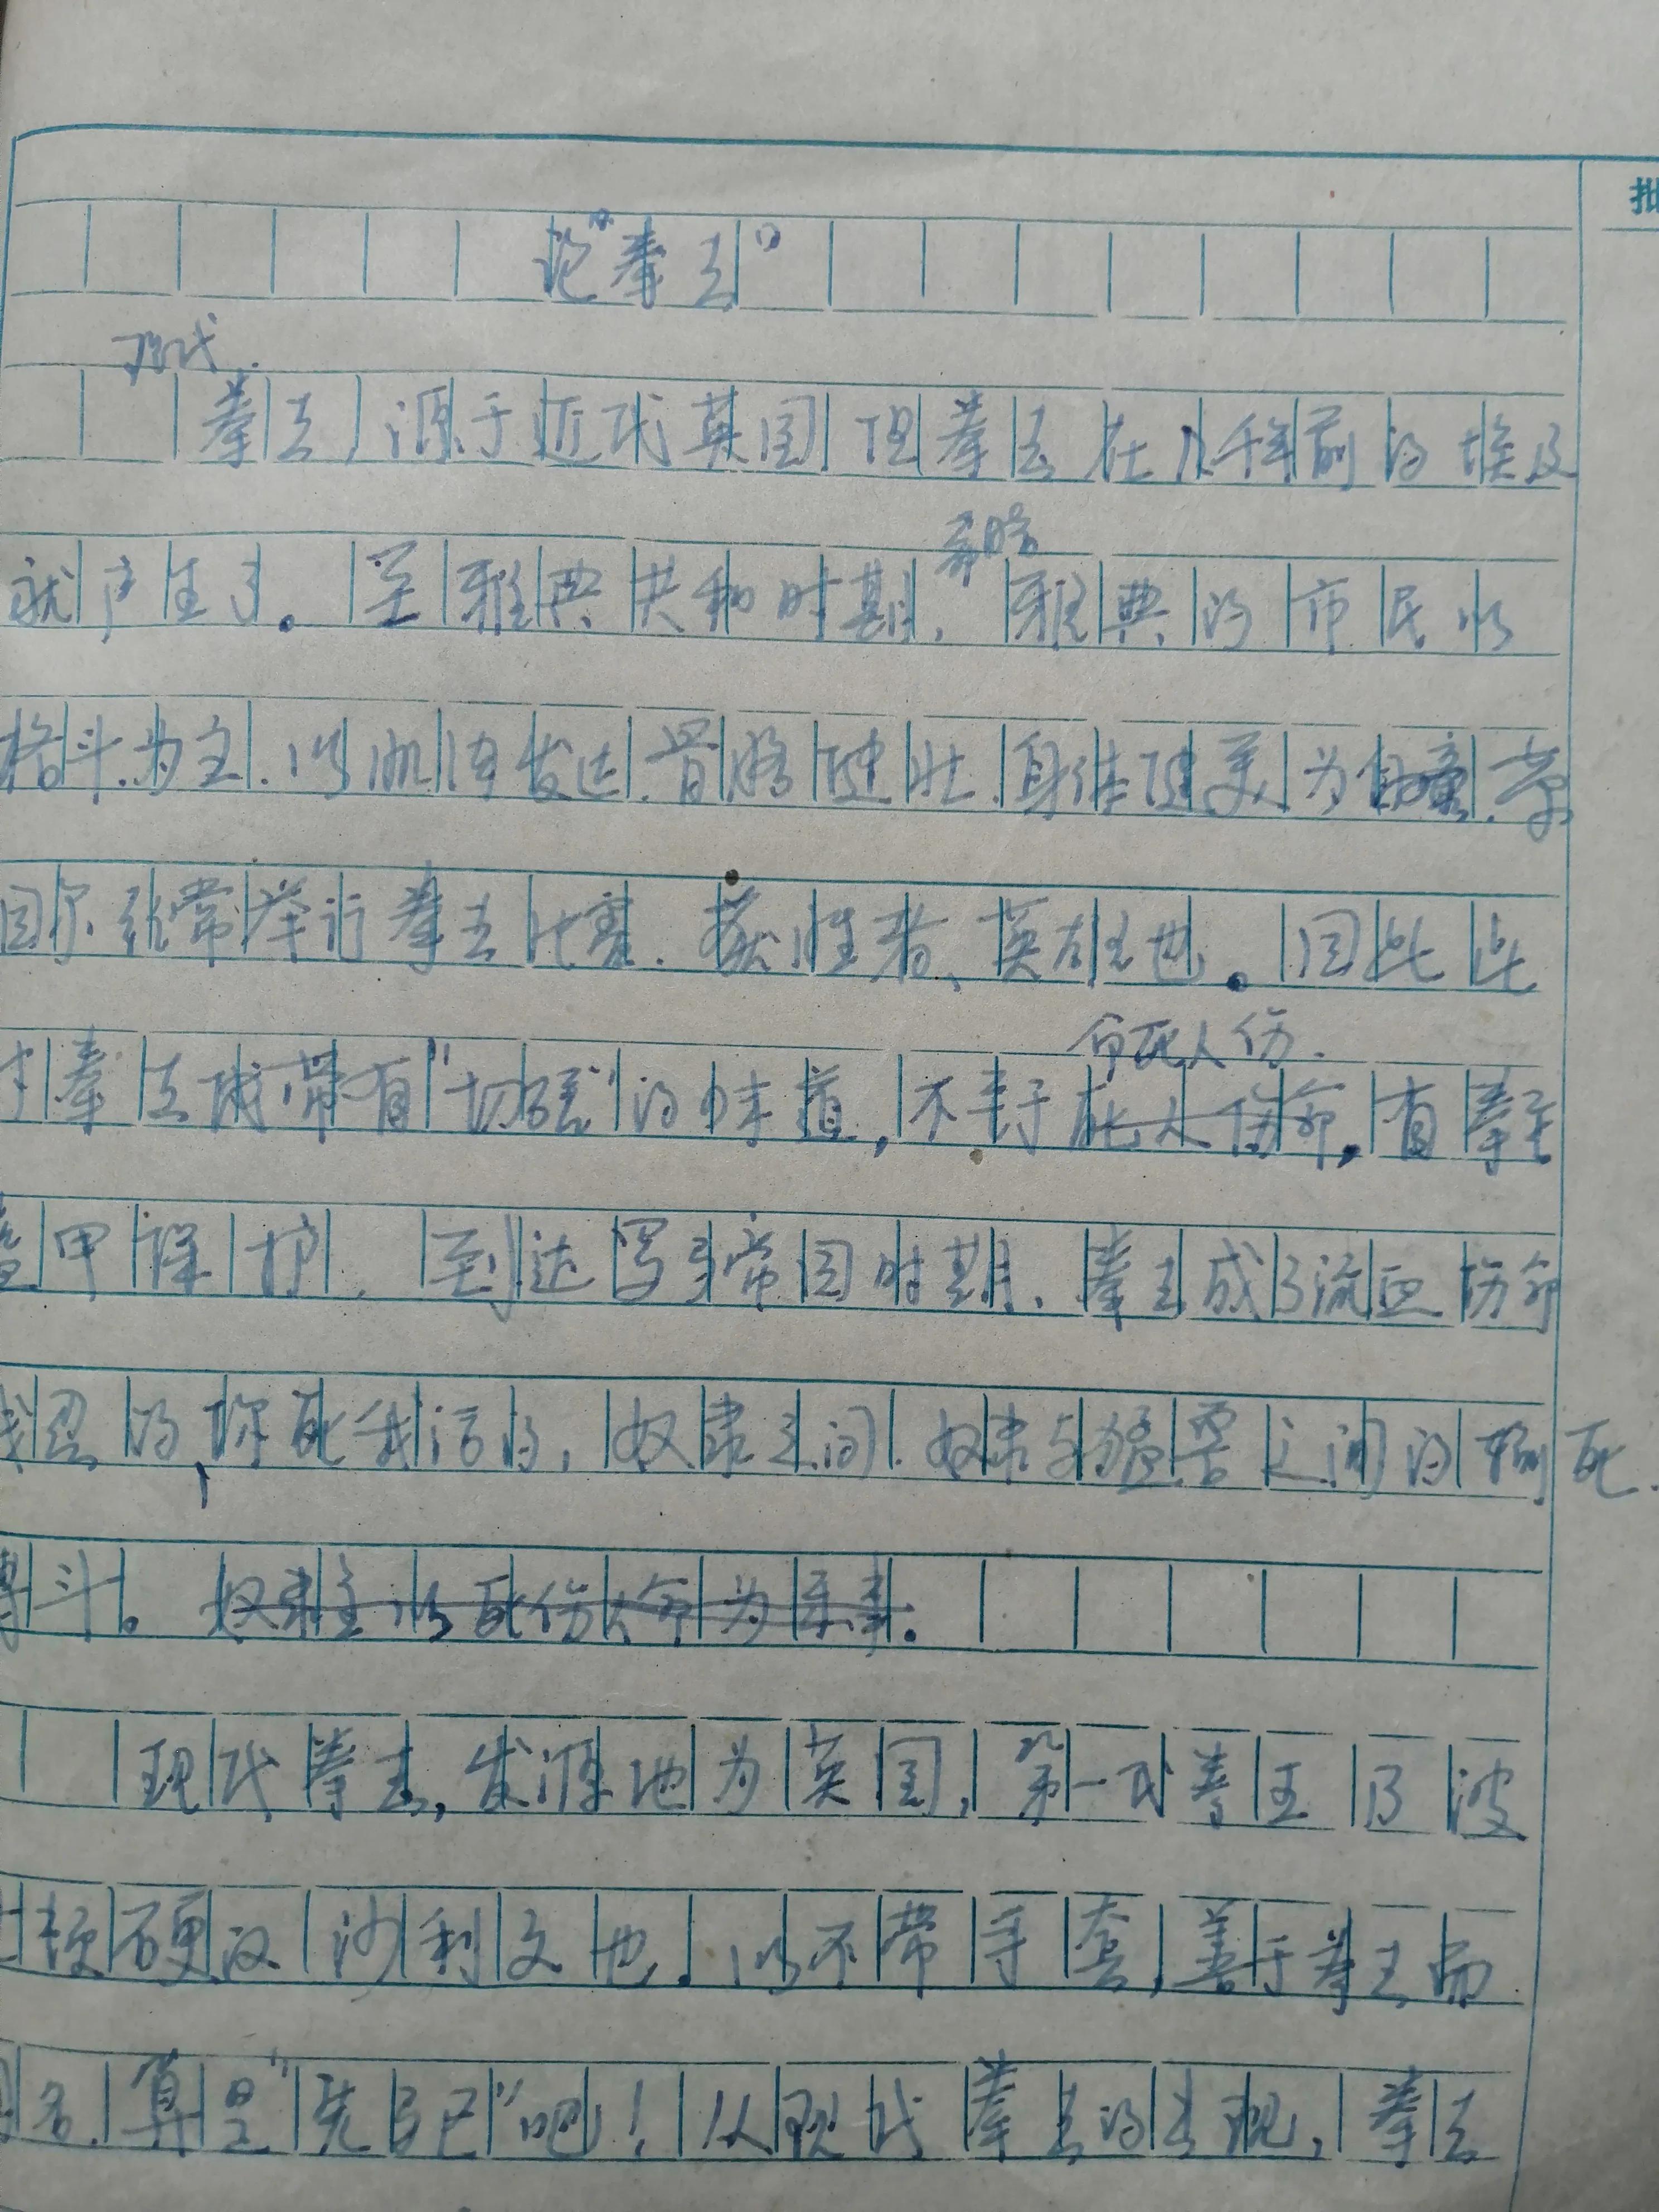 论"拳击"
现代
拳击,源于近代英国,但拳击在几千年前的埃及
就产生了。至雅典共和时期, 希腊 雅典的市民以
格斗为主.以肌体发达.骨骼健壮.身体健美为
经常举行拳击比赛.获胜者、英雄也。因此此
拳击带有"切磋"的味道,不至于命死人伤.有拳
甲保护.到达罗马帝国时期、拳击成了流血伤命
残忍的、你死我活的,奴隶之间.奴隶与猛兽之间的死.
搏斗。奴隶主以死伤人命为乐事.
现代拳击,发源地为英国,第一代拳王乃波
士顿硬汉沙利文也.以不带手套,善于拳击而
名.算是"先驱"吧!从现代拳击的出现,拳击